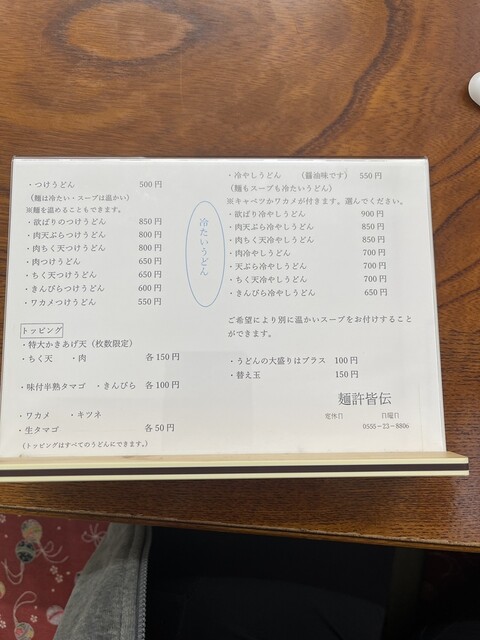 ・つけうどん 500円
(麺は冷たい・スープは温かい)
※麺を温めることもできます。
・欲ばりのつけうどん 850円
・肉天ぷらつけうどん 800円
・肉ちく天つけうどん 800円
・肉つけうどん 650円
・ちく天つけうどん 650円
・きんぴらつけうどん 600円
・ワカメつけうどん 550円
トッピング
・特大かきあげ天(枚数限定)
・ちく天 ・肉 各150円
・味付半熟タマゴ ・きんぴら 各100円
・ワカメ ・キツネ
・生タマゴ 各50円
(トッピングはすべてのうどんにできます。)
冷たいうどん
・冷やしうどん (醤油味です) 550円
(麺もスープも冷たいうどん)
※キャベツかワカメが付きます。選んでください。
・欲ばり冷やしうどん 900円
・肉天ぷら冷やしうどん 850円
・肉ちく天冷やしうどん 850円
・肉冷やしうどん 700円
・天ぷら冷やしうどん 700円
・ちく天冷やしうどん 700円
・きんぴら冷やしうどん 650円
ご希望により別に温かいスープをお付けすること
ができます。
・うどんの大盛りはプラス 100円
・替え玉 150円
麺許皆伝
定休日 日曜日
0555-23-8806